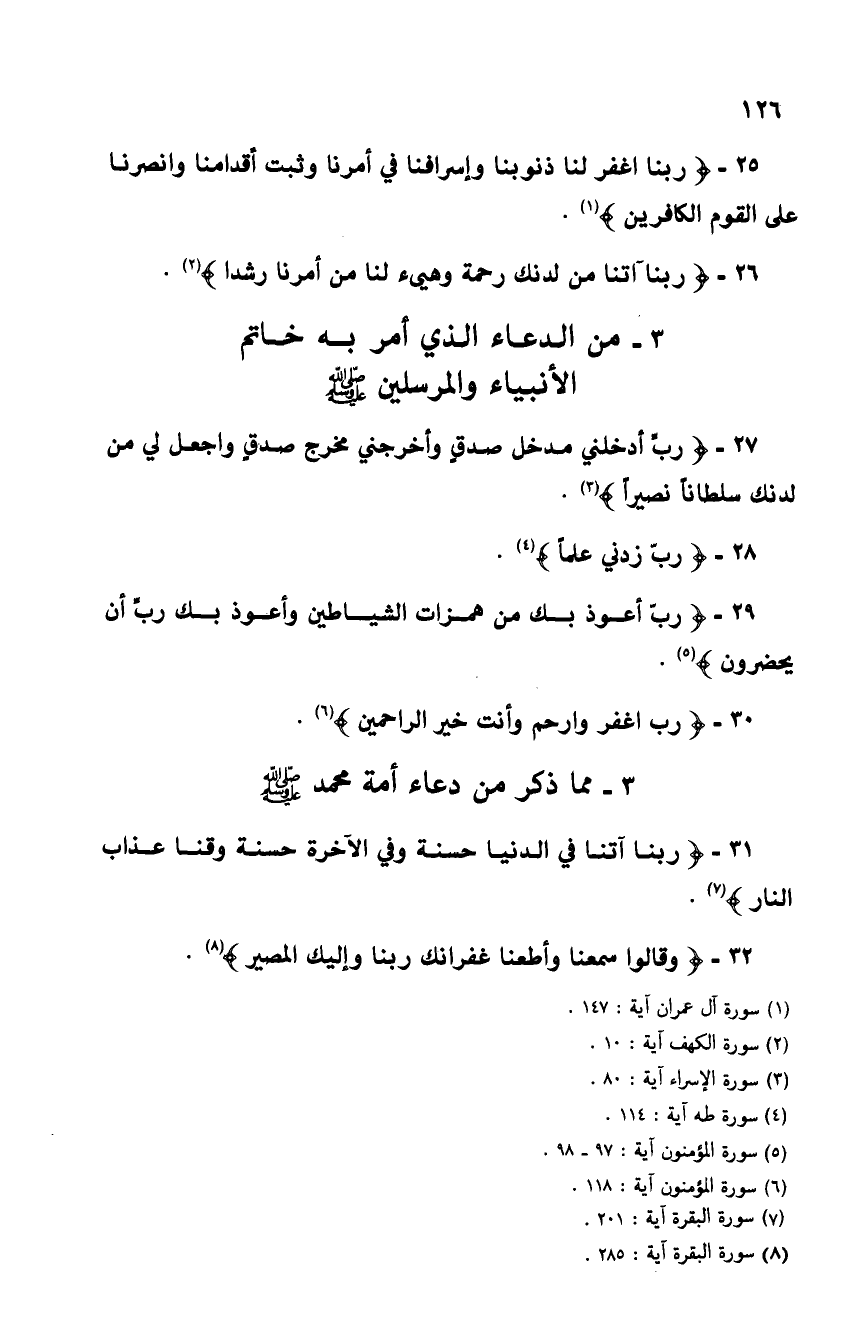 ١٢٦
٢٥ ـ ﴿ ربنا اغفر لنا ذنوبنا وإسرافنا في أمرنا وثبت أقدامنا وانصرنا
على القوم الكافرين ﴾(١) .
٢٦ ـ ﴿ ربنا آتنا من لدنك رحمة وهيىء لنا من أمرنا رشدا ﴾(٢) .
٣ ـ من الدعاء الذي أمر به خاتم
الأنبياء والمرسلين ﷺ
٢٧ ـ ﴿ ربِّ أدخلني مدخل صدقٍ وأخرجني مخرج صدقٍ واجعل لي من
لدنك سلطاناً نصيراً ﴾(٣) .
٢٨ ـ ﴿ ربّ زدني علماً ﴾(٤) .
٢٩ ـ ﴿ ربّ أعوذ بك من همزات الشياطين وأعوذ بك ربِّ أن
يحضرون ﴾(٥) .
٣٠ ـ ﴿ رب اغفر وارحم وأنت خير الراحمين ﴾(٦) .
٣ ـ مما ذكر من دعاء أمة محمد ﷺ
٣١ ـ ﴿ ربنا آتنا في الدنيا حسنة وفي الآخرة حسنة وقنا عذاب
النار ﴾(٧) .
٣٢ ـ ﴿ وقالوا سمعنا وأطعنا غفرانك ربنا وإليك المصير ﴾(٨) .
(١) سورة آل عمران آية : ١٤٧ .
(٢) سورة الكهف آية : ١٠ .
(٣) سورة الإسراء آية : ٨٠ .
(٤) سورة طه آية : ١١٤ .
(٥) سورة المؤمنون آية : ٩٧ ـ ٩٨ .
(٦) سورة المؤمنون آية : ١١٨ .
(٧) سورة البقرة آية : ٢٠١ .
(٨) سورة البقرة آية : ٢٨٥ .